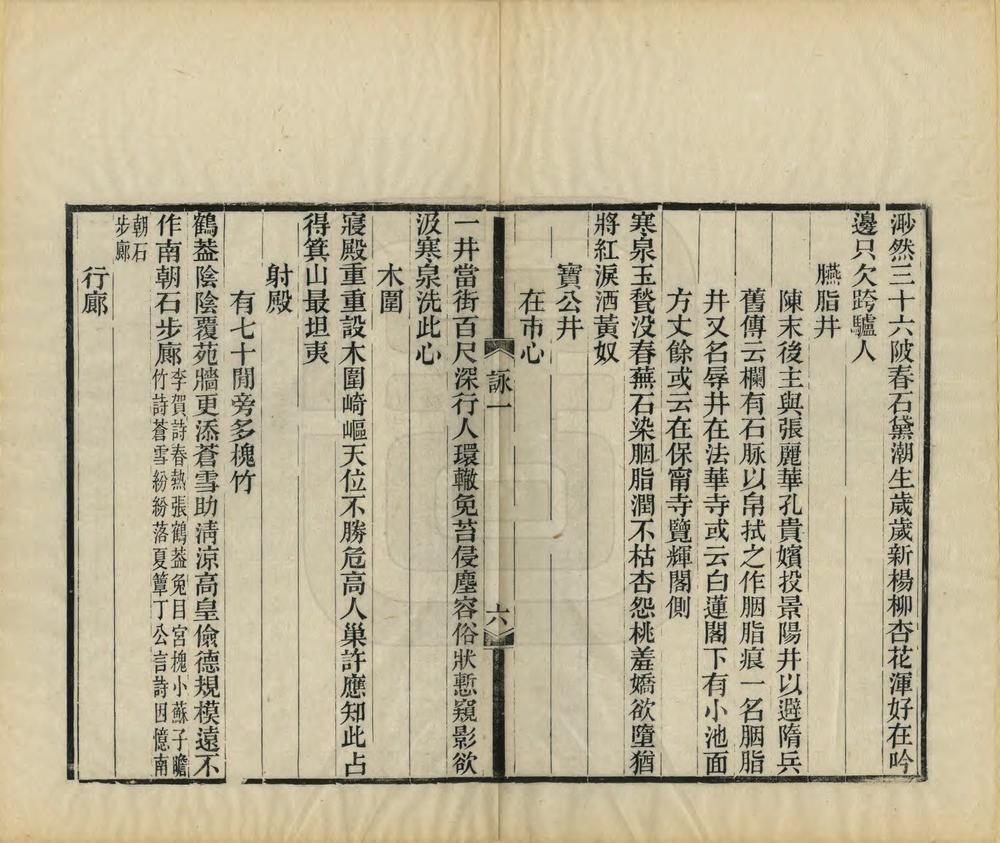 渺然三十六陂春石黛潮生歲歲新楊柳杏花渾好在吟
邊只欠跨驢人
臙脂井
陳末後主與張麗華孔貴嬪投景陽井以避隋兵
舊傳云欄有石脉以帛拭之作胭脂痕一名胭脂
井又名辱井在法華寺或云白蓮閣下有小池面
方丈餘或云在保甯寺覽輝閣側
寒泉玉甃没春蕪石染胭脂潤不枯杏怨桃羞嬌欲墮猶
將紅淚洒黃奴
寶公井
在市心
詠一
六
一井當街百尺深行人環轍免苔侵塵容俗狀慙窺影欲
汲寒泉洗此心
木圍
寢殿重重設木圍崎嶇天位不勝危高人巢許應知此占
得箕山最坦夷
射殿
有七十閒旁多槐竹
鶴葢陰陰覆苑牆更添蒼雪助淸涼高皇儉德規模遠不
作南朝石步廊
李賀詩春熱張鶴葢兔目宮槐小蘇子瞻
竹詩蒼雪紛紛落夏簟丁公言詩因憶南
朝石
步廊
行廊